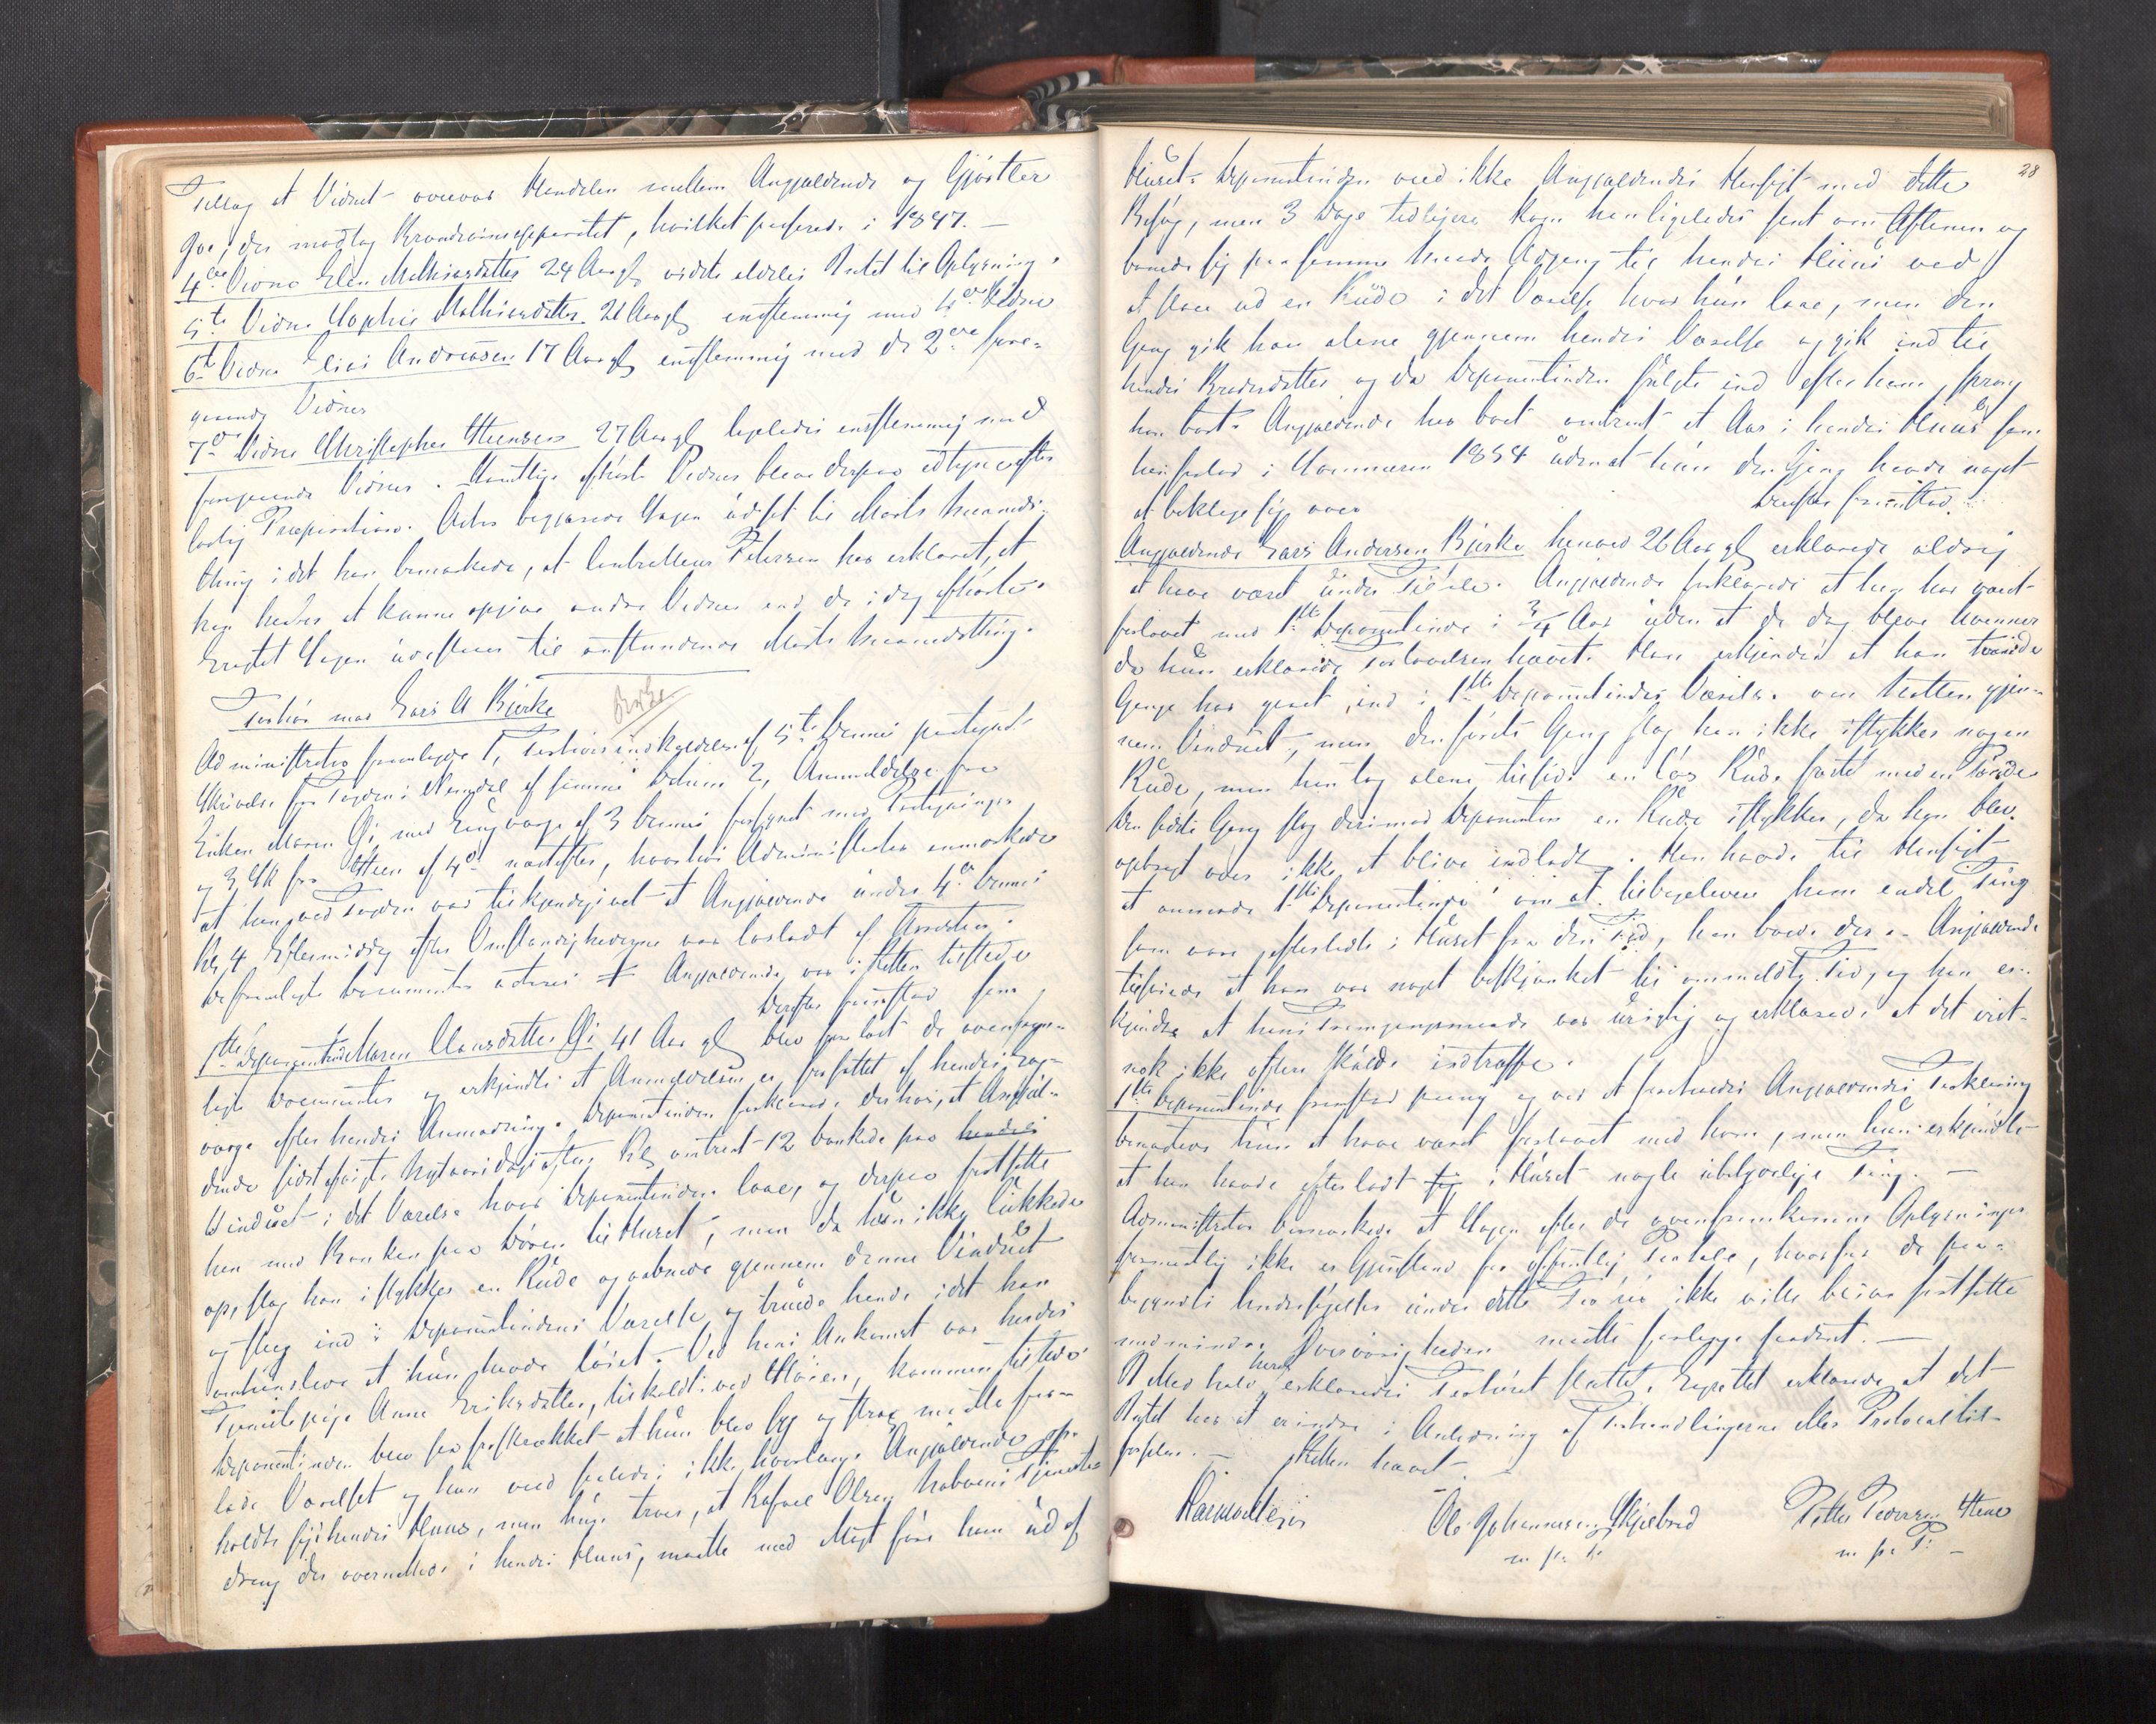 Tillæg at Vidnet overvar Handelen mellem Angjældende og Gjørtler
Goe, der modtog Brændeviinsapparatet, hvilket passerede i 1847. —
4de Vidne Elen Mathisdatter 24 Aar gl vidste aldeles Intet til Oplysning.
5te Vidne Sophie Mathisdatter 21 Aar gl enstemmig med 4de Vidne
6te Vidne Elias Andreassen 17 Aar gl enstemmig med de 2de fore-
gaaende Vidner
7de Vidne Christopher Steensen 27 Aar gl ligeledes enstemmig med
foregaaende Vidner. Samtlige afhørte Vidner bleve derpaa edtagne efter
lovlig Præparation. Actor begjærede Sagen udsat til Marts Maaneds-
thing idet han bemærkede, at Controlleur Petersen har erklæret, at
han ikke at kunne opgive andre Vidner end de i dag afhørte.
Eragtet Sagen udsættes til anstundende Marts Maanedsthing.
Forhør mod Lars A Bjerke
Bjerke
Administrator fremlagde 1, Forhørsindkaldelse af 5te dennes paategnet
Skrivelse fra Fogden i Namdal af samme Datum 2, Anmeldelse fra
Enken Maren Øi med Laugværge af 3 dennes forsynet med Paategninger
og 3, Skr fra Steen af 4de næstefter, hvorhos Administrator anmærkede
at han ved Fogden var tilkjendegivet at Angjældende under 4de dennes
Kl 4 Eftermiddag efter Omstændighederne var løsladt af Arresten.
De fremlagte Documenter acteres # Angjældende var i Retten tilstede
Derefter fremstod som
1ste Deponentinde Maren Clausdatter Øi 41 Aar gl blev forelæst de ovenfrem-
lagte Documenter og erkjendte at Anmeldelsen er forfattet af hendes Laug-
værge efter hendes Anmodning. Deponentinden forklarede derhos, at Angjæl-
dende sidstafvigte Nytaarsdagsaften Kl omtrent 12 bankede paa hendes
Vinduet i det Værelse hvor Deponentinden laae, og derpaa fortsatte
han med Banken paa Døren til Huset, men da hun ikke lukkede
op, slog han istykker en Rude og aabnede gjennem denne Vinduet
og steg ind i Deponentindens Værelse og truede hende idet han
omhandlede at hun havde løiet. Ved hans Ankomst var hendes
Tjenestepige Anne Eriksdatter, tilkaldt ved Støien, kommen tilstede.
Deponentinden blev saa forskrækket at hun blev syg og strax maatte for-
lade Værelset og hun veed saaledes ikke hvorlænge Angjældende op-
holdt sig i hendes Huus, men hun troer, at Rafael Olsen Naboens Tjeneste-
dreng der overnattede i hendes Huus, maatte med Magt føre ham ud af
28
Huset. Deponentinden veed ikke Angjældendes Hensigt med dette
Besøg, men 3 Dage tidligere kom han ligeledes sent om Aftenen og
banede sig paa samme Maade Adgang til hendes Huus ved
at slaae ud en Rude i det Værelse hvor hun laae, men den
Gang gik han alene gjennem hendes Værelse og gik ind til
hendes Broderdatter og da Deponentinden fulgte ind efter ham, sprang
han bort. Angjældende har boet omtrent et Aar i hendes Huus som
han forlod i Sommeren 1854 uden at hun den Gang havde noget
at beklage sig over
Derefter fremstod
Angjældende Lars Andersen Bjerke henved 26 Aar gl erklærede aldrig
at have været under Tiltale. Angjældende forklarede at han har været
forlovet med 1ste Deponentinde i 3/4 Aar uden at de dog bleve Uvenner
da hun erklærede Forlovelsen hævet. Han erkjender at han tvende
Gange har gaaet ind i 1ste Deponentindes Værelse om Natten gjen-
nem Vinduet, men den første Gang slog han ikke istykker nogen
Rude, men han tog alene tilside en løs Rude
Den sidste Gang slog derimod Deponenten en Rude istykker, da han blev
opbragt over ikke at blive indladt. Han havde til Hensigt
at anmode 1ste Deponentinde om at tilbagelevere ham endel Ting
som vare efterladte i Huset fra den Tid, han boede der. Angjældende
tilføiede at han var noget beskjænket til ommeldte Tid, og han er-
kjender at hans Fremgangsmaade var urigtig og erklærede at det vist-
nok ikke oftere skulde indtræffe.
1ste Deponentinde fremstod paany og ved at foreholdes Angjældendes Forklaring
benægtede hun at have været forlovet med ham, men hun erkjendte
at han havde efterladt sig i Huset nogle ubetydelige Ting. —
Administrator bemærkede at Sagen efter de ovenfremkomne Oplysninger
formentlig ikke er Gjenstand for offentlig Paatale, hvorfor de paa-
begyndte Undersøgelser under dette Forhør ikke ville blive fortsatte
medmindre Øvrigheden maatte forlange saadant. —
Med hvad heraf erklæredes Forhøret sluttet. Laugrettet erklærede at det
Intet har at erindre i Anledning af Forhandlingerne eller Protocoltil-
førselen. — Retten hævet —
Ole Johannesen Skjelbred
m. p. P.
Petter Pedersen Stene
m p. P. —